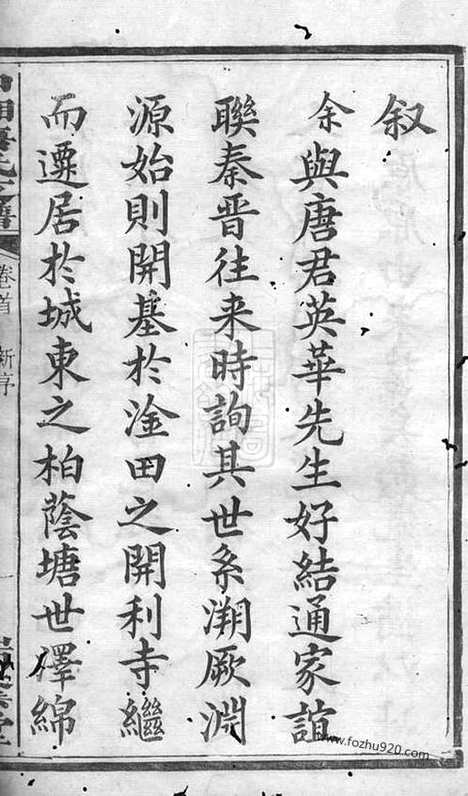 叙
余與唐君英華先生好結通家誼
聯秦晋往来時詢其世系溯厥淵
源始則開基於淦田之開利寺繼
而遷居於城東之柏蔭塘世澤綿
卷首 新序
www.fozhu920.com